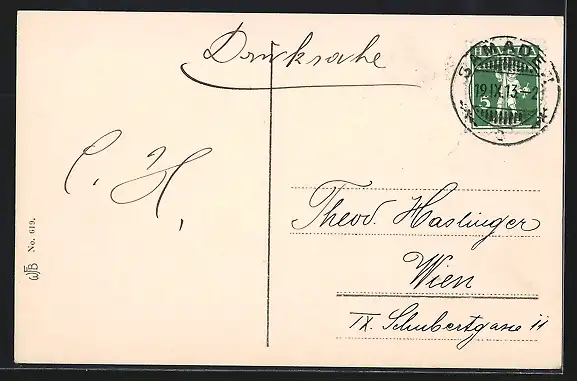 Drucksache
SAMADEN
19.IX.13
5
C. H.,
Theod. Haslinger
Wien
IX. Schubertgasse 11
No. 619.
WFB